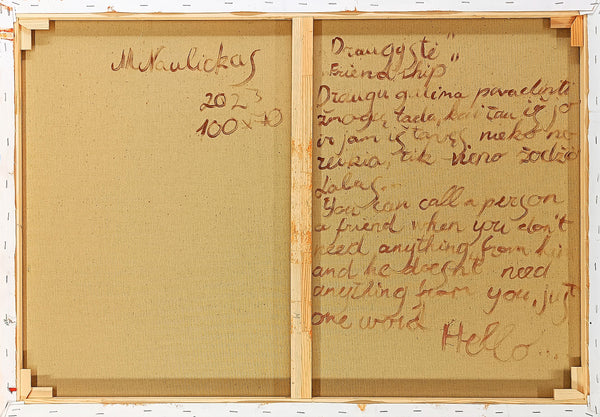 M Naulickas
2023
100 x 70
„Draugystė"
„Friendship"
Draugu galima pavadinti
žmogų, tada, kai tau iš jo
ir jam iš tavęs nieko ne
reikia, tik vieno žodžio
Labas...
You can call a person
a friend when you don't
need anything from him
and he doesn't need
anything from you, just
one word
Hello...